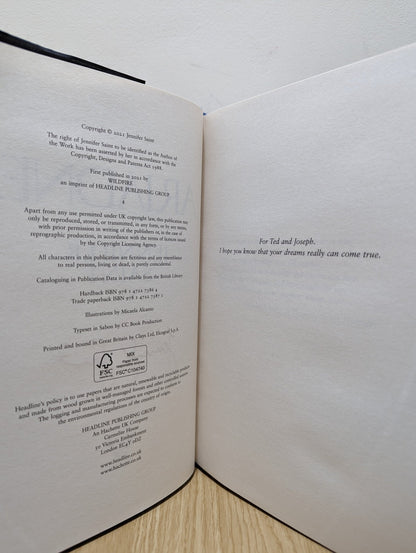 Copyright © 2021 Jennifer Saint
The right of Jennifer Saint to be identified as the Author of
the Work has been asserted by her in accordance with the
Copyright, Designs and Patents Act 1988.
First published in 2021 by
WILDFIRE
an imprint of HEADLINE PUBLISHING GROUP
4
Apart from any use permitted under UK copyright law, this publication may
only be reproduced, stored, or transmitted, in any form, or by any means,
with prior permission in writing of the publishers or, in the case of
reprographic production, in accordance with the terms of licences issued
by the Copyright Licensing Agency.
All characters in this publication are fictitious and any resemblance
to real persons, living or dead, is purely coincidental.
Cataloguing in Publication Data is available from the British Library
Hardback ISBN 978 1 4722 7386 4
Trade paperback ISBN 978 1 4722 7387 1
Illustrations by Micaela Alcaino
Typeset in Sabon by CC Book Production
Printed and bound in Great Britain by Clays Ltd, Elcograf S.p.A.
FSC
www.fsc.org
MIX
Paper from
responsible sources
FSC® C104740
Headline's policy is to use papers that are natural, renewable and recyclable products
and made from wood grown in well-managed forests and other controlled sources.
The logging and manufacturing processes are expected to conform to
the environmental regulations of the country of origin.
HEADLINE PUBLISHING GROUP
An Hachette UK Company
Carmelite House
50 Victoria Embankment
London EC4Y 0DZ
www.headline.co.uk
www.hachette.co.uk
For Ted and Joseph.
I hope you know that your dreams really can come true.